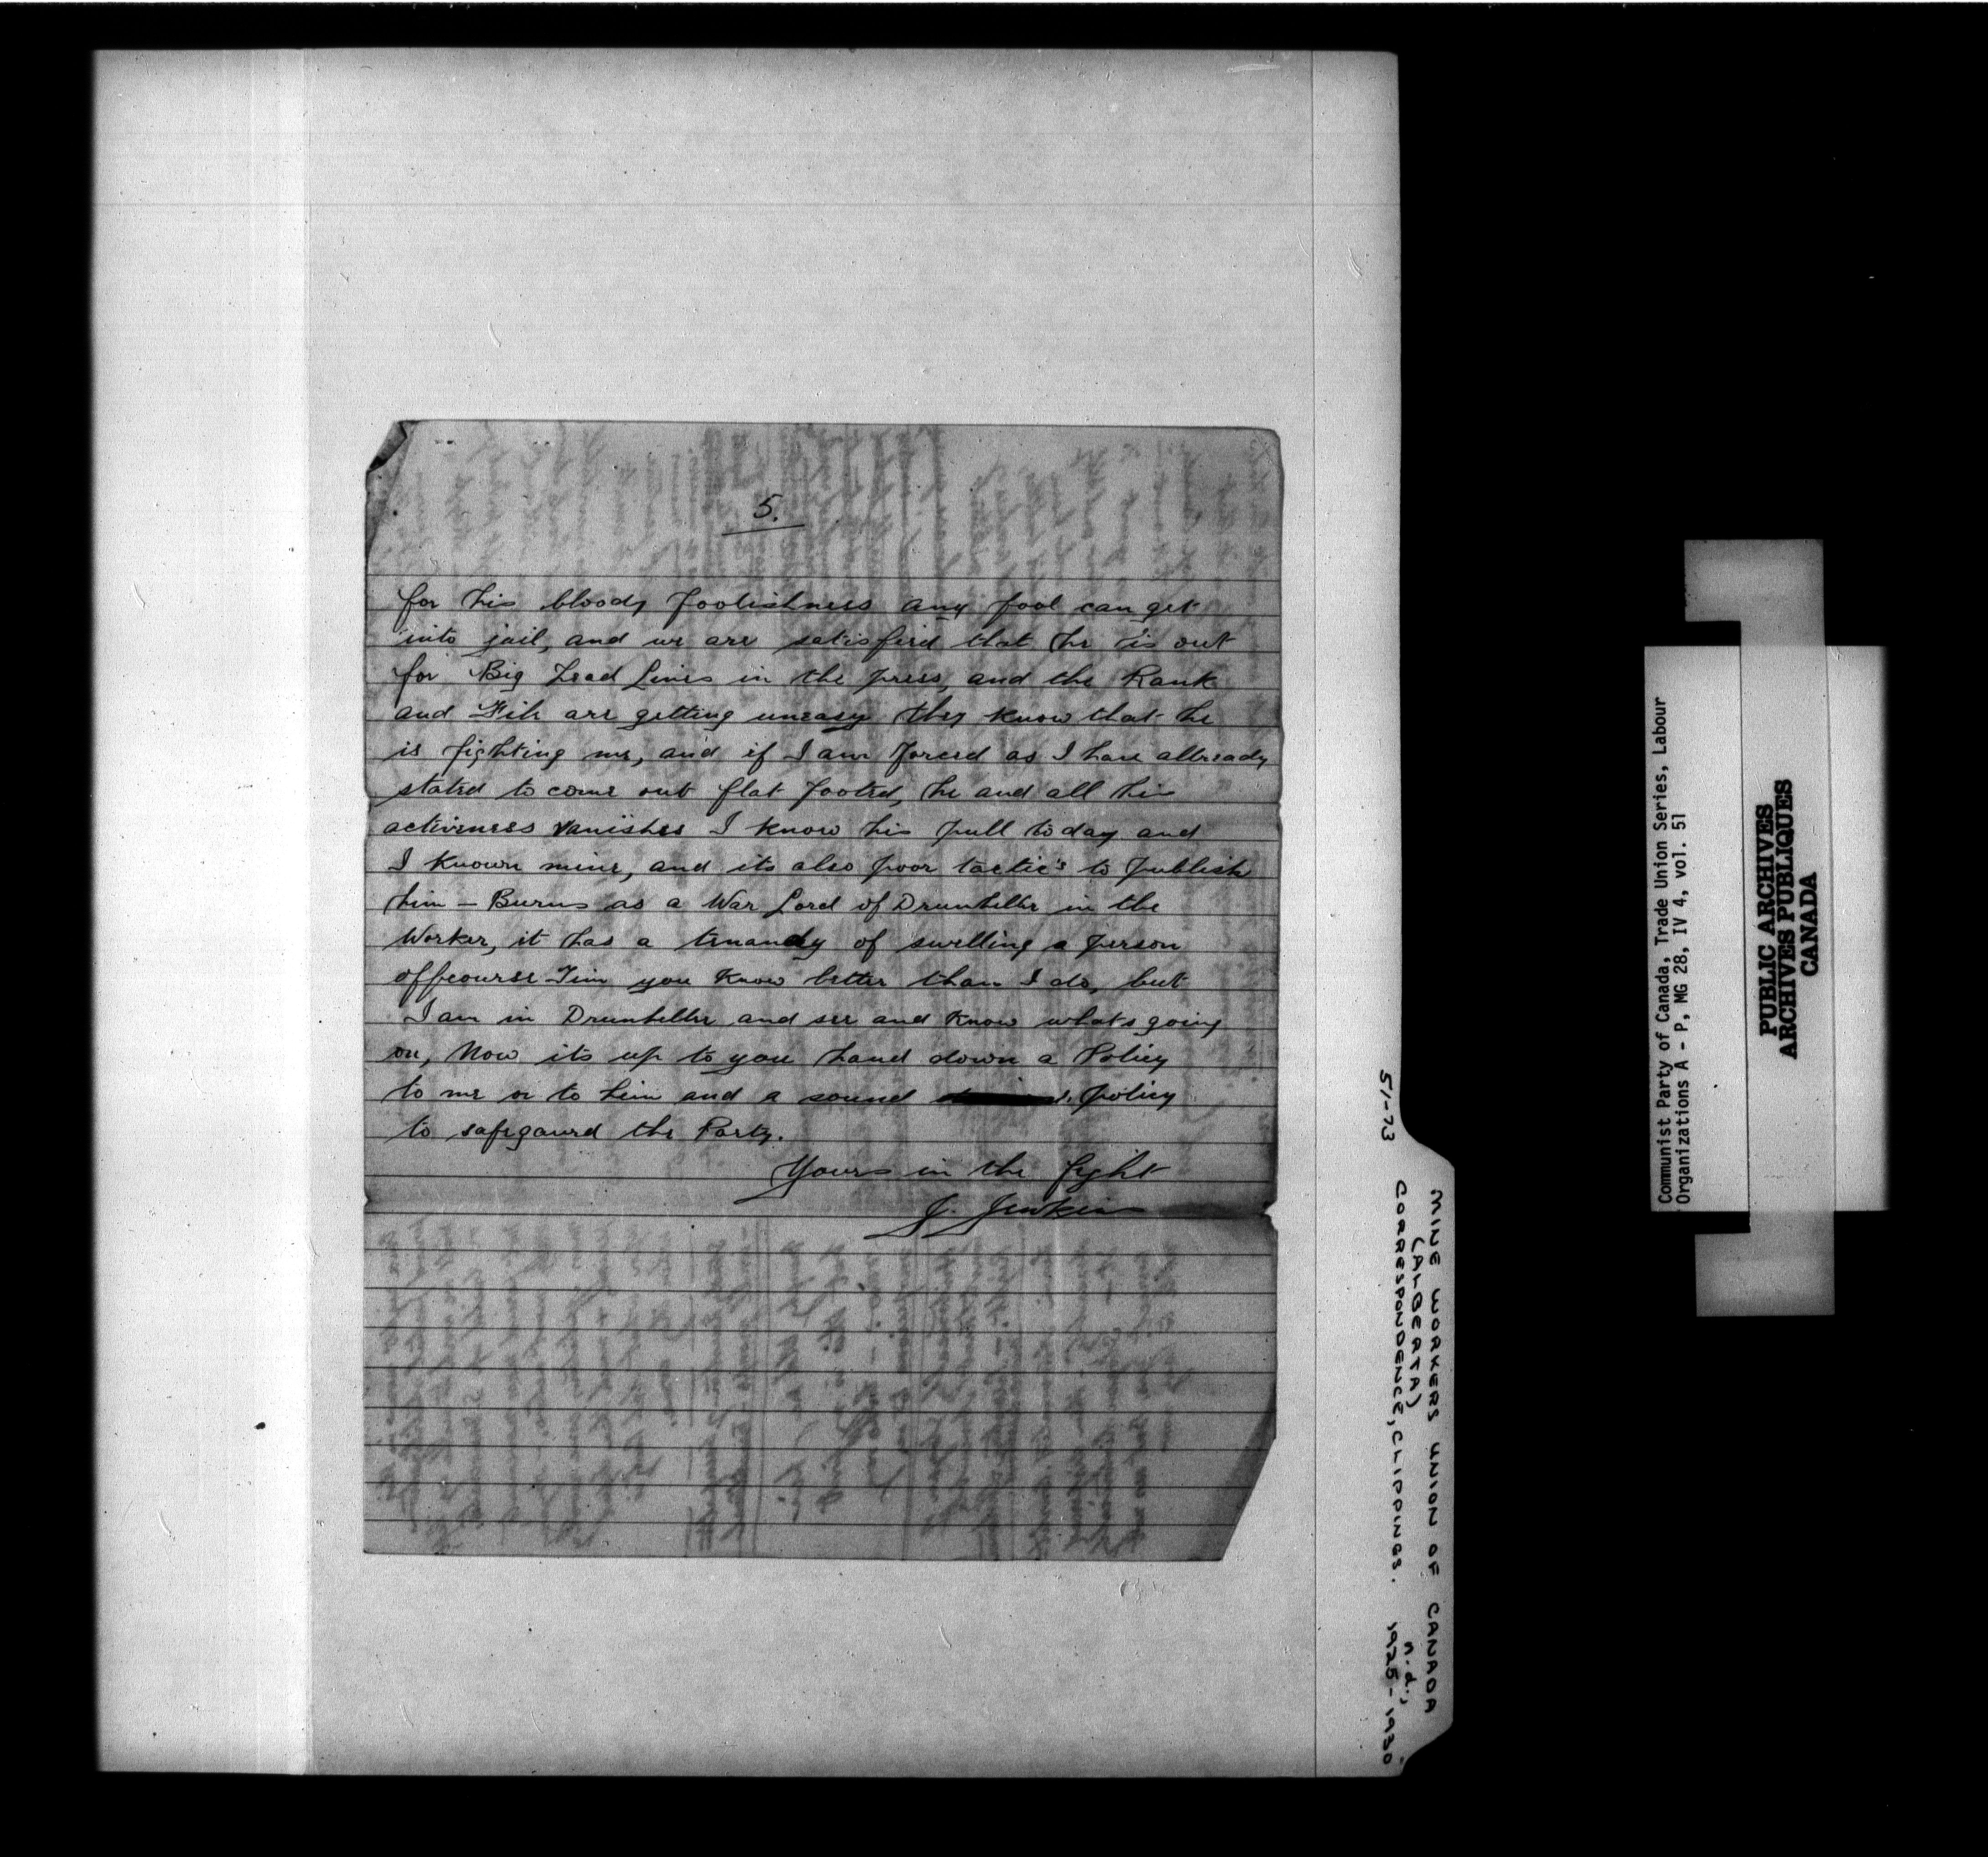 5.
for his bloody foolishness any fool can get
into jail, and we are satisfied that he is out
for Big Head Lines in the press, and the Rank
and File are getting uneasy they know that he
is fighting me, and if I am forced as I have allready
stated to come out flat footed, he and all his
activeness vanishes I know his pull today and
I known mine, and its also poor tactic's to publish
him - Burns as a War Lord of Drumheller in the
Worker, it has a tenandcy of swelling a person
offcourse Jim you know better than I do, but
I am in Drumheller and see and know whats going
on, Now its up to you hand down a Policy
to me or to him and a sound policy
to safegaurd the Party.
Yours in the fight
J. Jenkins
51-73
MINE WORKERS UNION OF CANADA
(ALBERTA)
CORRESPONDENCE, CLIPPINGS. n.d.; 1925-1930
Communist Party of Canada, Trade Union Series, Labour
Organizations A - P, MG 28, IV 4, vol. 51
PUBLIC ARCHIVES
ARCHIVES PUBLIQUES
CANADA